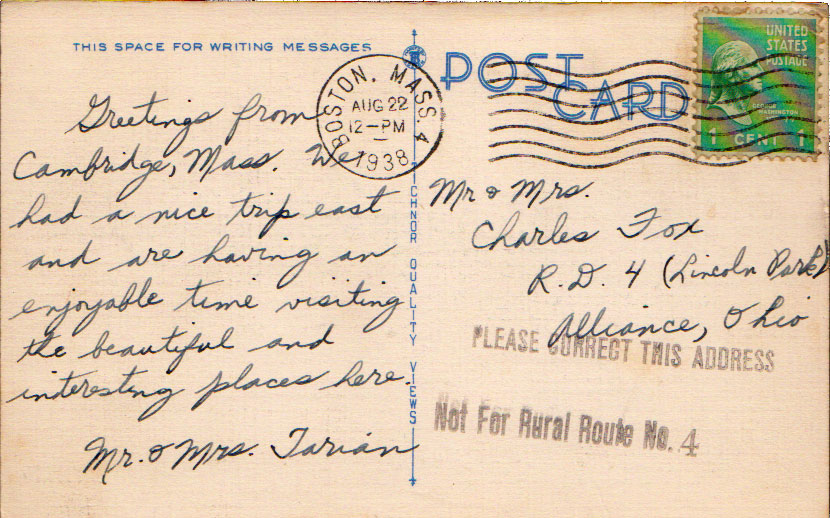 THIS SPACE FOR WRITING MESSAGES
Greetings from
Cambridge, Mass. We
had a nice trip east
and are having an
enjoyable time visiting
the beautiful and
interesting places here.
Mr. & Mrs. Tarian
TICHNOR QUALITY VIEWS
POST
CARD
BOSTON, MASS. 4
AUG 22
12–PM
1938
UNITED
STATES
POSTAGE
GEORGE
WASHINGTON
1 CENT 1
Mr & Mrs.
Charles Fox
R.D. 4 (Lincoln Park)
Alliance, Ohio
PLEASE CORRECT THIS ADDRESS
Not For Rural Route No. 4